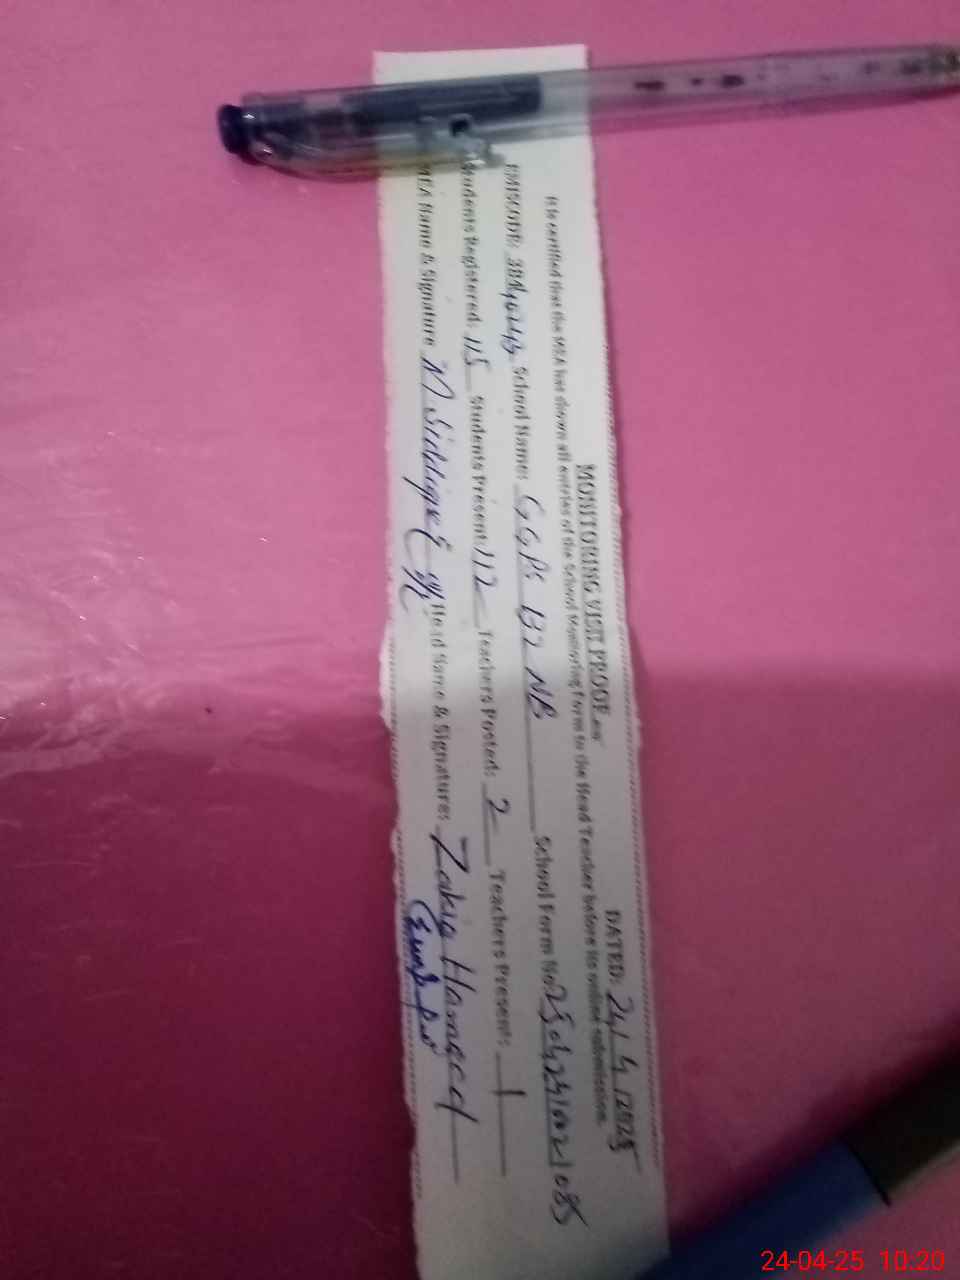 MONITORING VISIT PROOF
DATED: 24/4/2025
It is certified that the MEA has shown all entries of the School Monitoring Form to the Head Teacher before its online submission.
EMISCODE: 38440243 School Name: GGPS 132 NB School Form No
Students Registered: 115 Students Present: 112 Teachers Posted: 2 Teachers Present: 1
MEA Name & Signature M Siddique Head Name & Signature: Zakia Hameed
24-04-25 10:20